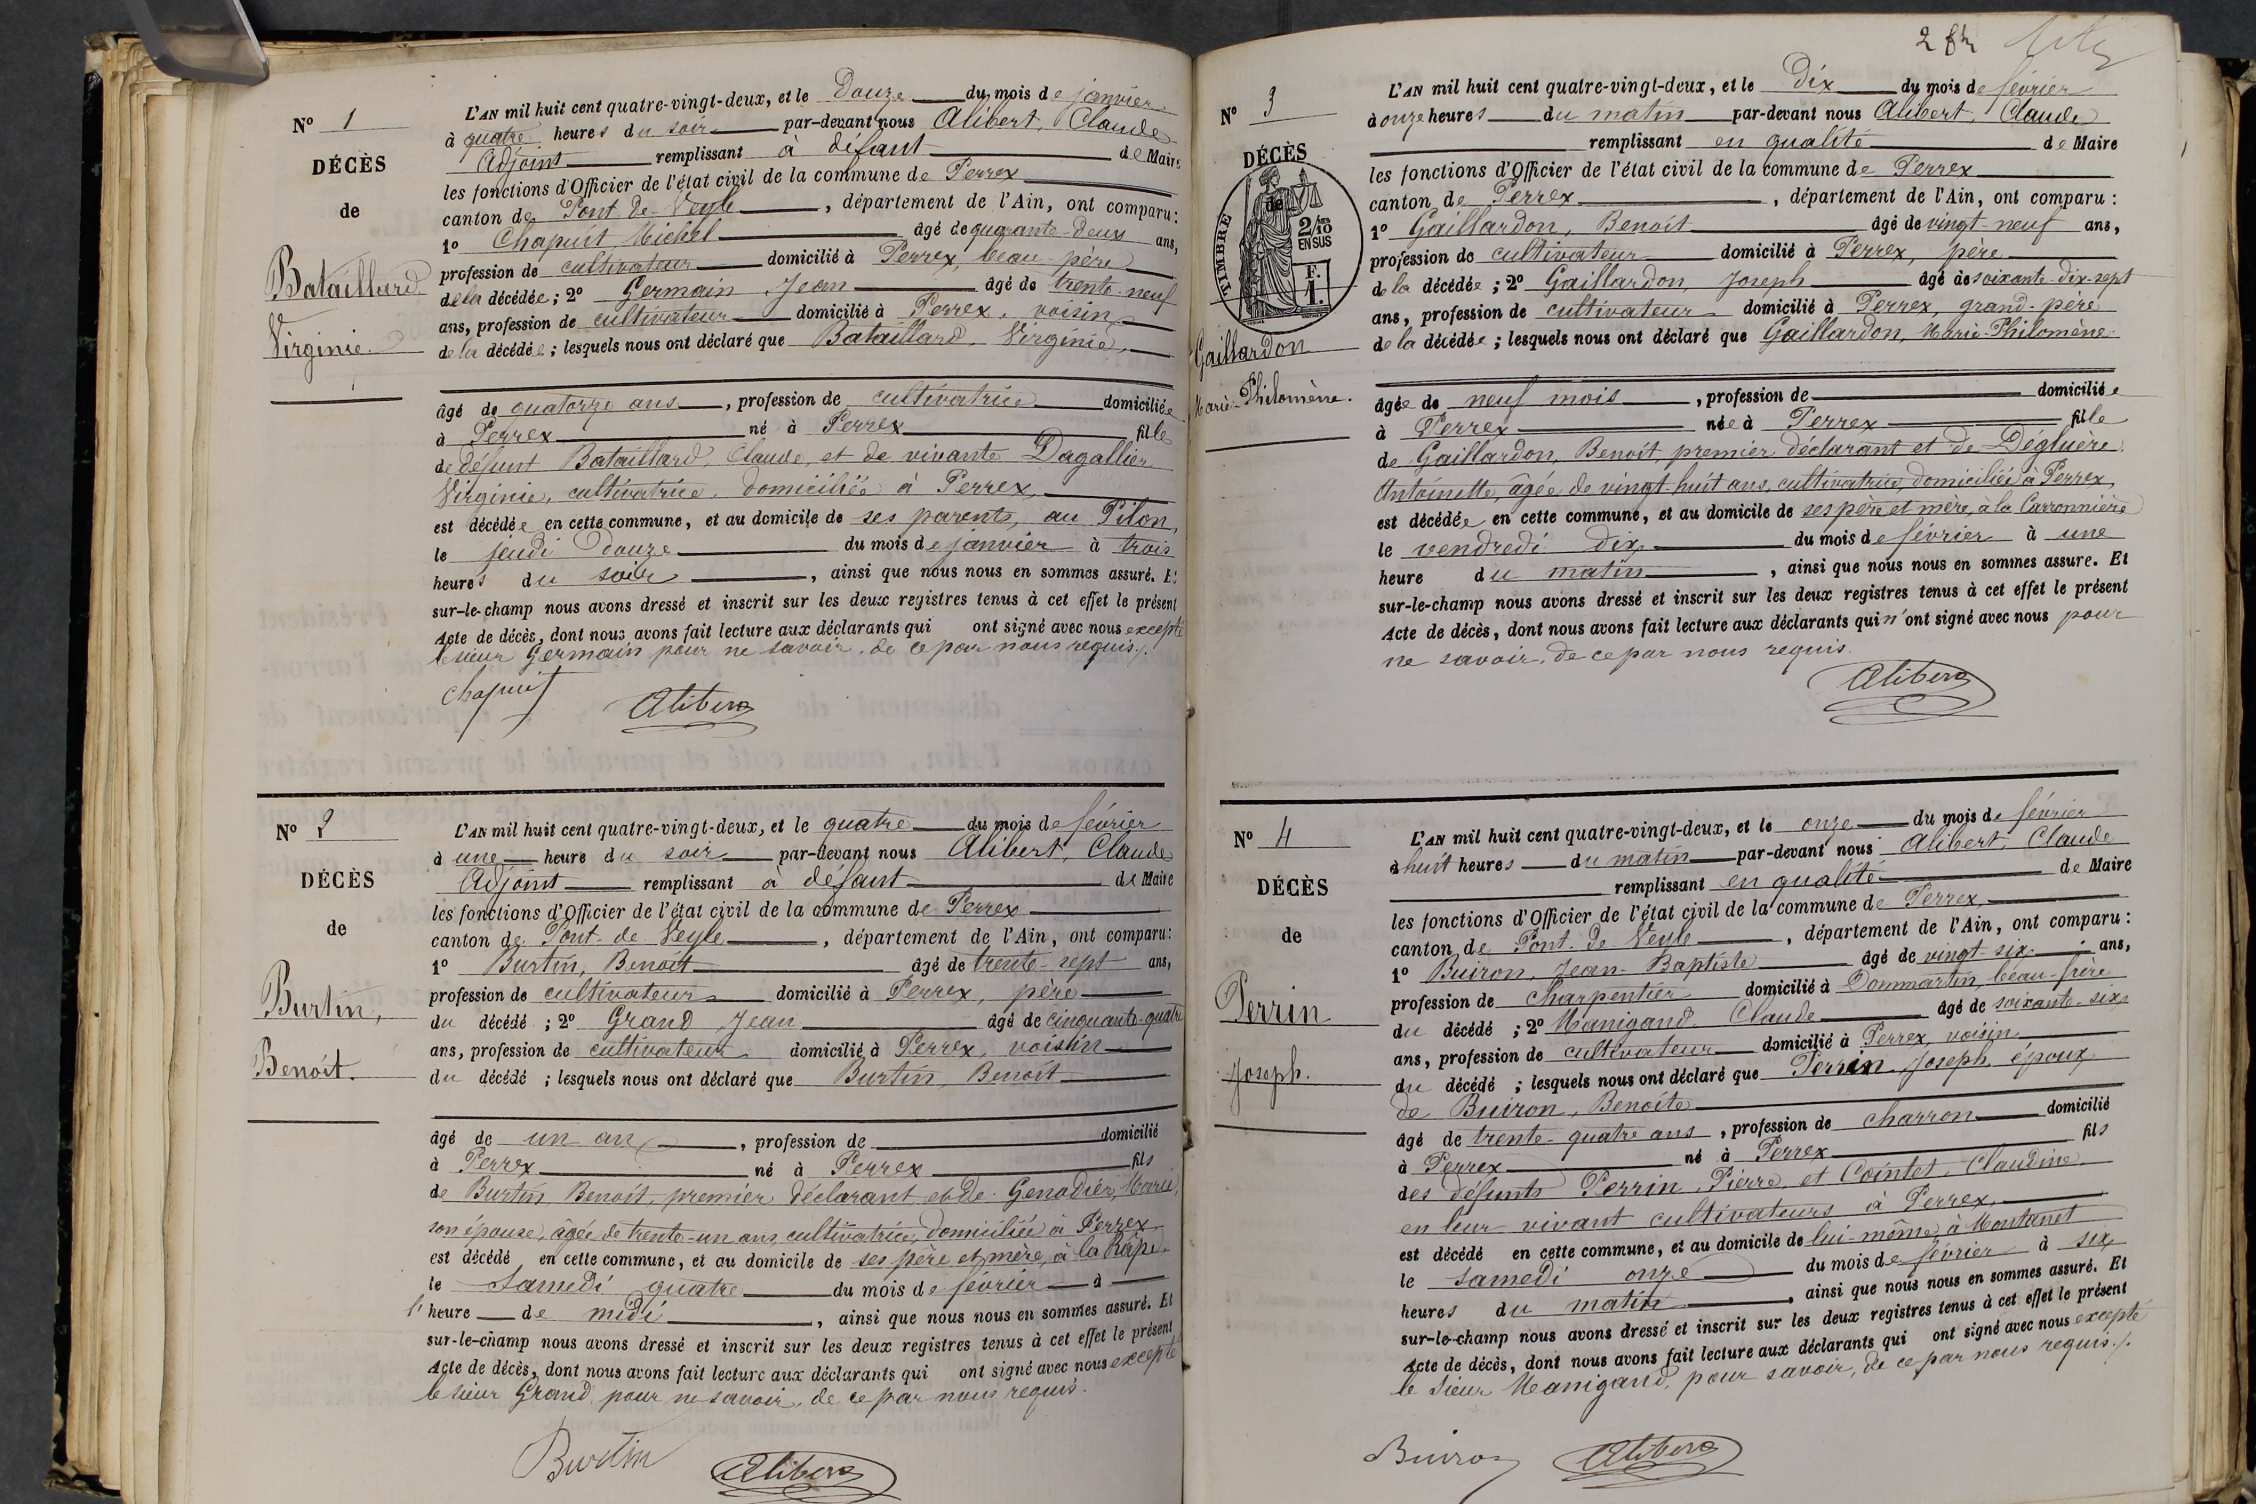 N° 1
DÉCÈS
de
Bataillard
Virginie.
L'AN mil huit cent quatre-vingt-deux, et le Douze du mois de janvier
à quatre heures du soir par-devant nous Alibert, Claude
Adjoint remplissant à défaut de Maire
les fonctions d'Officier de l'état civil de la commune de Perrex
canton de Pont de Veyle, département de l'Ain, ont comparu :
1° Chapuit Michel âgé de quarante-deux ans,
profession de cultivateur domicilié à Perrex, beau-père
de la décédée ; 2° Germain Jean âgé de trente-neuf
ans, profession de cultivateur domicilié à Perrex, voisin
de la décédée ; lesquels nous ont déclaré que Bataillard, Virginie,
âgé de quatorze ans, profession de cultivatrice domiciliée
à Perrex né à Perrex fille
de défunt Bataillard, Claude, et de vivante Dagallier
Virginie, cultivatrice, domiciliée à Perrex,
est décédée en cette commune, et au domicile de ses parents, au Pilon,
le jeudi Douze du mois de janvier à trois
heures du soir, ainsi que nous nous en sommes assuré. Et
sur-le-champ nous avons dressé et inscrit sur les deux registres tenus à cet effet le présent
Acte de décès, dont nous avons fait lecture aux déclarants qui ont signé avec nous excepté
le sieur Germain pour ne savoir, de ce par nous requis./.
Chapuit
Alibert
N° 2
DÉCÈS
de
Burtin,
Benoît.
L'AN mil huit cent quatre-vingt-deux, et le quatre du mois de février
à une heure du soir par-devant nous Alibert, Claude
Adjoint remplissant à défaut de Maire
les fonctions d'Officier de l'état civil de la commune de Perrex
canton de Pont-de Veyle, département de l'Ain, ont comparu :
1° Burtin, Benoît âgé de trente-sept ans,
profession de cultivateur domicilié à Perrex, père
du décédé ; 2° Grand Jean âgé de cinquante-quatre
ans, profession de cultivateur domicilié à Perrex, voisin
du décédé ; lesquels nous ont déclaré que Burtin, Benoît
âgé de un an, profession de domicilié
à Perrex né à Perrex fils
de Burtin, Benoît, premier déclarant et de Genadier, Marie,
son épouse, âgée de trente-un ans, cultivatrice, domiciliée à Perrex
est décédé en cette commune, et au domicile de ses père et mère, à la Râpe
le Samedi quatre du mois de février à
l'heure de midi, ainsi que nous nous en sommes assuré. Et
sur-le-champ nous avons dressé et inscrit sur les deux registres tenus à cet effet le présent
Acte de décès, dont nous avons fait lecture aux déclarants qui ont signé avec nous excepté
le sieur Grand, pour ne savoir, de ce par nous requis.
Burtin
Alibert
2
N° 3
DÉCÈS
de
TIMBRE
2/10
EN SUS
F.
1.
Gaillardon
Marie-Philomène.
L'AN mil huit cent quatre-vingt-deux, et le Dix du mois de février
à onze heures du matin par-devant nous Alibert, Claude
remplissant en qualité de Maire
les fonctions d'Officier de l'état civil de la commune de Perrex
canton de Perrex, département de l'Ain, ont comparu :
1° Gaillardon, Benoît âgé de vingt-neuf ans,
profession de cultivateur domicilié à Perrex, père
de la décédée ; 2° Gaillardon Joseph âgé de soixante-dix-sept
ans, profession de cultivateur domicilié à Perrex, grand-père
de la décédée ; lesquels nous ont déclaré que Gaillardon, Marie-Philomène
âgée de neuf mois, profession de domiciliée
à Perrex née à Perrex fille
de Gaillardon, Benoît, premier déclarant et de Dégluère
Antoinette, âgée de vingt-huit ans, cultivatrice, domiciliée à Perrex,
est décédée en cette commune, et au domicile de ses père et mère, à la Carronnière
le vendredi dix du mois de février à une
heure du matin, ainsi que nous nous en sommes assuré. Et
sur-le-champ nous avons dressé et inscrit sur les deux registres tenus à cet effet le présent
Acte de décès, dont nous avons fait lecture aux déclarants qui n'ont signé avec nous pour
ne savoir, de ce par nous requis.
Alibert
N° 4
DÉCÈS
de
Perrin
Joseph.
L'AN mil huit cent quatre-vingt-deux, et le onze du mois de février
à huit heures du matin par-devant nous Alibert, Claude
remplissant en qualité de Maire
les fonctions d'Officier de l'état civil de la commune de Perrex,
canton de Pont-de Veyle, département de l'Ain, ont comparu :
1° Buiron, Jean-Baptiste âgé de vingt-six ans,
profession de charpentier domicilié à Dommartin, beau-frère
du décédé ; 2° Manigand Claude âgé de soixante-six
ans, profession de cultivateur domicilié à Perrex, voisin
du décédé ; lesquels nous ont déclaré que Perrin, Joseph, époux
de Buiron, Benoîte
âgé de trente-quatre ans, profession de charron domicilié
à Perrex né à Perrex fils
des défunts Perrin, Pierre et Cointet, Claudine,
en leur vivant cultivateurs à Perrex,
est décédé en cette commune, et au domicile de lui-même, à Montanet
le samedi onze du mois de février à six
heures du matin, ainsi que nous nous en sommes assuré. Et
sur-le-champ nous avons dressé et inscrit sur les deux registres tenus à cet effet le présent
Acte de décès, dont nous avons fait lecture aux déclarants qui ont signé avec nous excepté
le sieur Manigand, pour savoir, de ce par nous requis./.
Buiron
Alibert